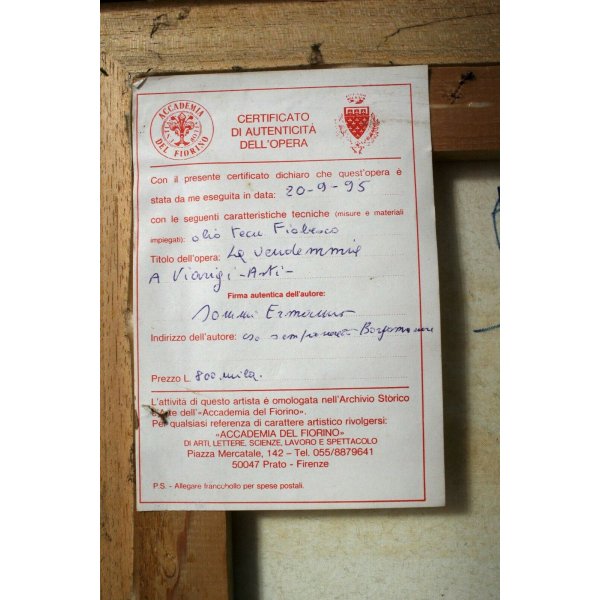 ACCADEMIA
DEL FIORINO
CERTIFICATO
DI AUTENTICITÀ
DELL'OPERA
Con il presente certificato dichiaro che quest'opera è
stata da me eseguita in data: 20-9-95
con le seguenti caratteristiche tecniche (misure e materiali
impiegati): olio tecn Fiabesco
Titolo dell'opera: La vendemmia
A Viarigi - Asti -
Firma autentica dell'autore:
Sommi Ermanno
Indirizzo dell'autore:
Prezzo L. 800 mila.
L'attività di questo artista è omologata nell'Archivio Storico
d'Arte dell'«Accademia del Fiorino».
Per qualsiasi referenza di carattere artistico rivolgersi:
«ACCADEMIA DEL FIORINO»
DI ARTI, LETTERE, SCIENZE, LAVORO E SPETTACOLO
Piazza Mercatale, 142 – Tel. 055/8879641
50047 Prato - Firenze
P.S. - Allegare francobollo per spese postali.